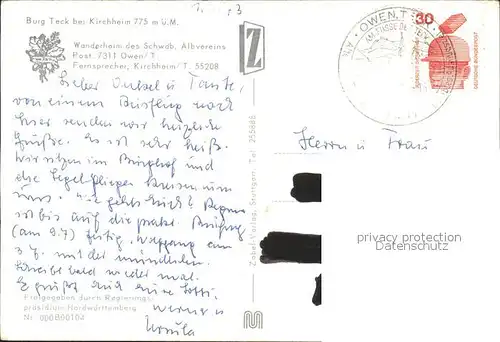 Burg Teck bei Kirchheim 775 m ü.M.
Wanderheim des Schwäb. Albvereins
Post 7311 Owen/T.
Fernsprecher, Kirchheim/T. 55208
Z
OWEN,TECK
IM FUSSE DER
30
DEUTSCHE BUNDESPOST
Lieber Onkel u Tante,
von einem Ausflug nach
hier senden wir herzliche
Grüße. Es ist sehr heiß.
Wir sitzen im Burghof und
die Segelflieger kreisen um
uns. geht's gut?
ist bis auf die prakt. Prüfung
(am 9.7) fertig. Wolfgang am
3.7. mit der mündlichen.
Schreibe bald wieder mal.
Es grüßt Euch eure Lotti
Werner u
Ursula
Herrn u Frau
Freigegeben durch Regierungs-
präsidium Nordwürttemberg
Zobel-Verlag, Stuttgart, Tel.
privacy protection
Datenschutz